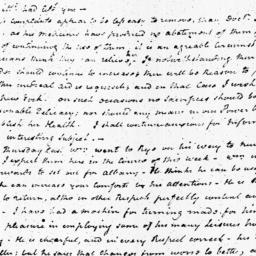 had left you —
complaints appear to be less easy to remove, than Doct.
as his medicines have produced no abatement of them
of continuing the use of them, it is an agreeable circumst
cians think they can relieve. If notwithstanding them
do: should continue to increase there will be Reason to
ther medical aid is requisite; and in that Case I wish
New York. on such occasions no Sacrifices should be
sonable Delicacy; nor should any means in our Power
blish his Health. I shall continue anxious for Infor
interesting Subject. —
Thursday last Wm. went to Rye on his way to New
I expect them here in the course of this week —
wards to set out for Albany. He thinks he can be use
he can increase your comforts by his attentions. He is
to return, altho in other Respects perfectly content
I have had a machine for turning made, for him
pleasure in employing some of his many Leisure hours
. He is cheerful, and in every Respect correct — his
; but he says that changes from worse to better, a